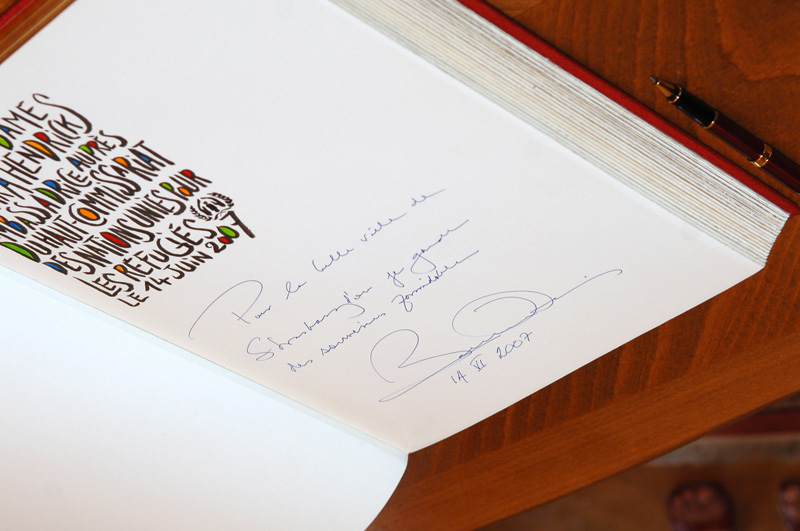 DAMES
HENDRICKS
AMBASSADRICE AUPRÈS
DU HAUT-COMMISSARIAT
DES NATIONS UNIES POUR
LES RÉFUGIÉS
LE 14 JUIN 2007
Pour la belle ville de
Strasbourg dont je garde
des souvenirs formidables
14 VI 2007